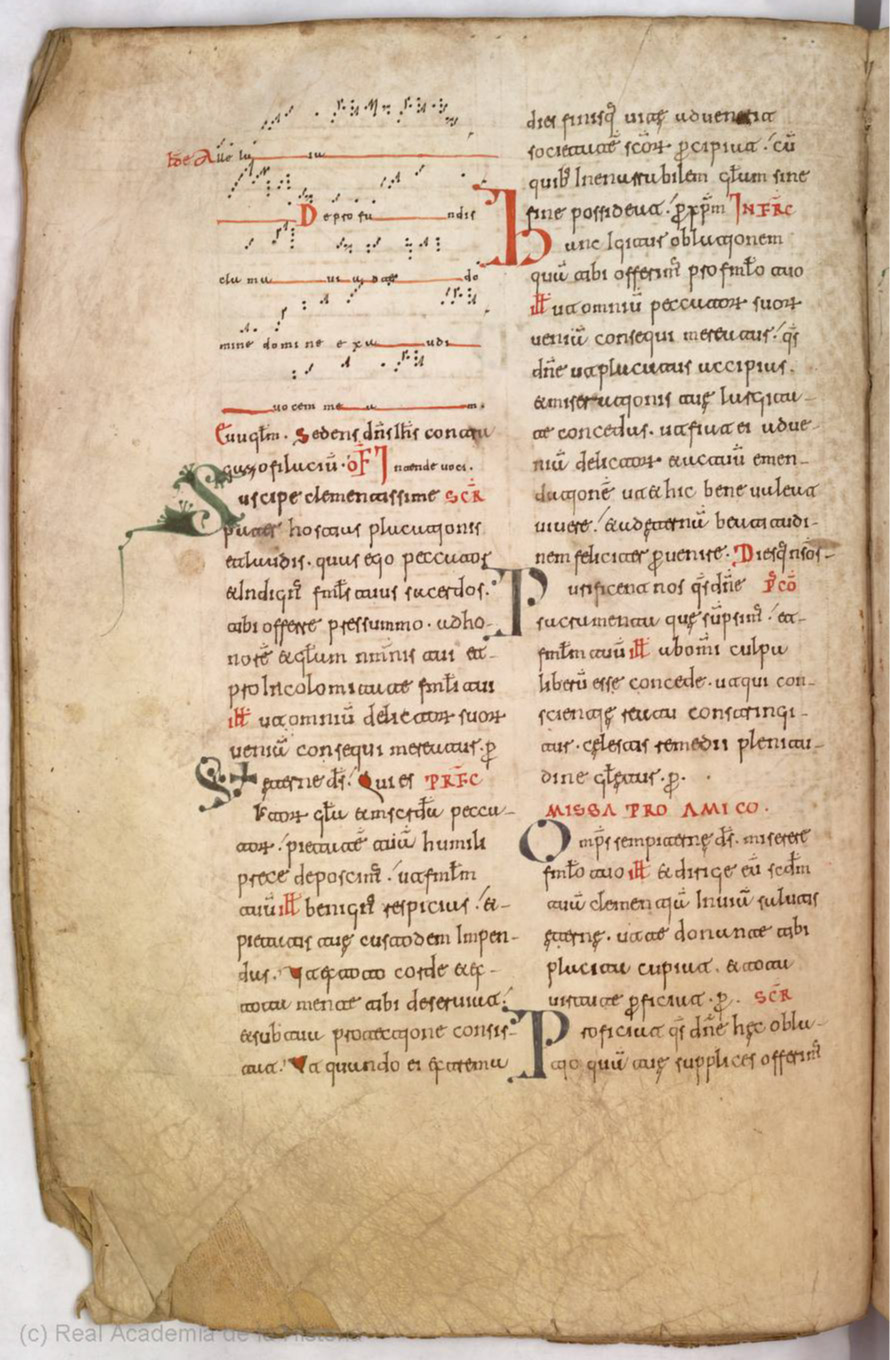 Alle lu ia
De pro fu ndis
cla ma ui ad te do
mine domine exau di
uocem mea m.
Euuglm. Sedens dns ihs contra
gazofilaciu. of Intende uoci.
Suscipe clementissime SCR
pater hostias placationis
et laudis. quas ego peccator
& indign' fmls tuus sacerdos.
tibi offerre pressummo. ad ho-
nore & glam nminis tui et-
pro Incolomitate fmli tui
ill ut omniu delictor suor
ueniu consequi mereatur. p
eterne ds. Qui es PRFC
fator glā & miscdā pecca-
tor. pietate tuā humili
prece deposcim'. ut fmlm
tuū ill benign' respicias. &-
pietatis tue custodem Impen-
das. Ut ex toto corde & ex-
tota mente tibi deseruiat.
& sub tua protectione consis-
tat. Ut quando ei extrema
dies finisq uite aduenerit
societate scor pcipiat. cū
quib' Inenarrabilem glam sine
fine possideat. p xpm INFRC
Hanc Igitur oblationem
quā tibi offerim' pro fmlo tuo
ill ut omniu peccator suor
ueniā consequi mereatur. qs
dne ut placatus accipias.
& miserationis tue largita-
te concedas. ut fiat ei ad ue-
niā delictor & actuū emen-
datione ut & hic bene ualeat
uiuere. & ad eternā beatitudi-
nem feliciter puenire. Diesq nsos-
Purificent nos qs dne PCO
sacramenta que sūpsim'. et-
fmlm tuū ill ab omi culpa
liberū esse concede. ut qui con-
scientie reatu constringi-
tur. celestis remedii plenitu-
dine gletur. p.
MISSA PRO AMICO.
Omps sempiterne ds. miserere
fmlo tuo ill & dirige eū scdm
tuā clementiā In uiā salutis
eterne. ut te donante tibi
placita cupiat. & tota
uirtute pficiat. p. SCR
Proficiat qs dne hec obla-
tio quā tue supplices offerim'
(c) Real Academia de la Historia